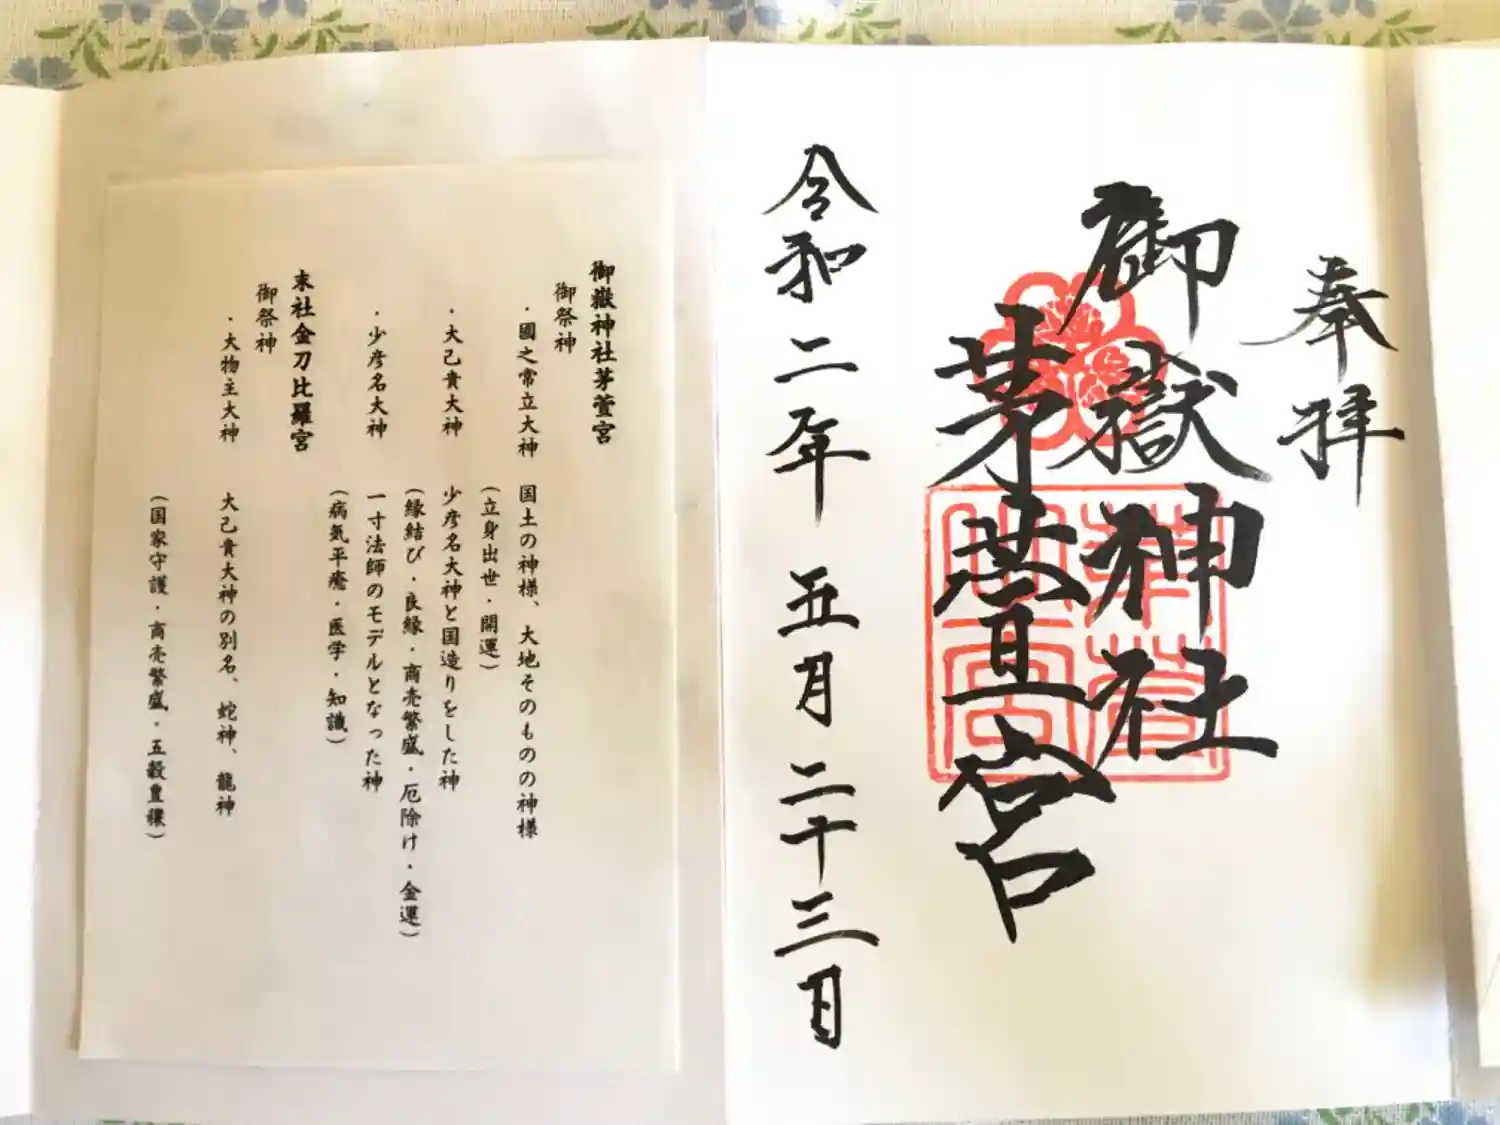 奉拝
御嶽神社
茅萱宮
令和二年 五月二十三日
御嶽神社茅萱宮
御祭神
・國之常立大神 国土の神様、大地そのものの神様
(立身出世・開運)
・大己貴大神 少彦名大神と国造りをした神
(縁結び・良縁・商売繁盛・厄除け・金運)
・少彦名大神 一寸法師のモデルとなった神
(病気平癒・医学・知識)
末社金刀比羅宮
御祭神
・大物主大神 大己貴大神の別名、蛇神、龍神
(国家守護・商売繁盛・五穀豊穣)